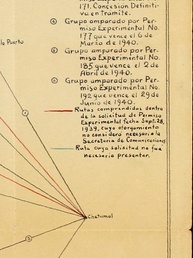 171. Concesion Definiti-
va en Tramite.
Grupo amparado por Per-
miso Experimental No.
177 que vence el 6 de
Marzo de 1940.
Grupo amparado por Per-
miso Experimental No.
185 que vence el 2 de
Abril de 1940.
Grupo amparado por Per-
miso Experimental No.
192 que vence el 29 de
Junio de 1940.
Rutas comprendidas dentro
de la solicitud de Permiso
Experimental fecha Sept. 28,
1939, cuyo otorgamiento
no consideró necesario la
Secretaria de Comunicaciones
Ruta cuya solicitud no fue
necesario presentar.
de Puerto
Chetumal